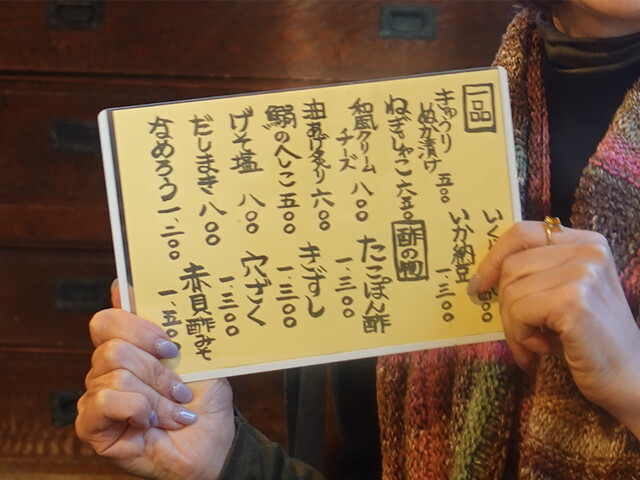 一品
きゅうり
ぬか漬け 五〇〇
ねぎじゃこ 六五〇
和風クリーム
チーズ 八〇〇
油あげ炙り 六〇〇
鰯のへしこ 五〇〇
げそ塩 八〇〇
だしまき 八〇〇
なめろう 一、二〇〇
いく
いか納豆 一、三〇〇
酢の物
たこぽん酢 一、三〇〇
きずし 一、三〇〇
穴ざく 一、三〇〇
赤貝酢みそ 一、五〇〇